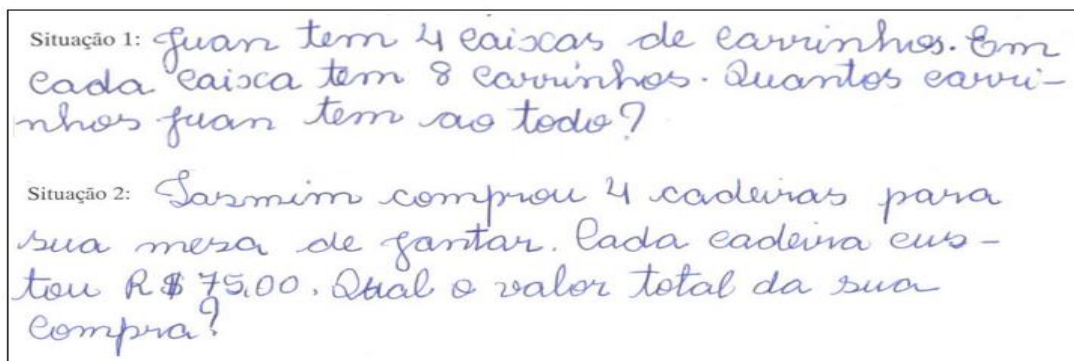 Situação 1: Juan tem 4 caixas de carrinhos. Em
cada caixa tem 8 carrinhos. Quantos carri-
nhos Juan tem ao todo?
Situação 2: Jasmim comprou 4 cadeiras para
sua mesa de jantar. Cada cadeira cus-
tou R$ 75,00. Qual o valor total da sua
compra?